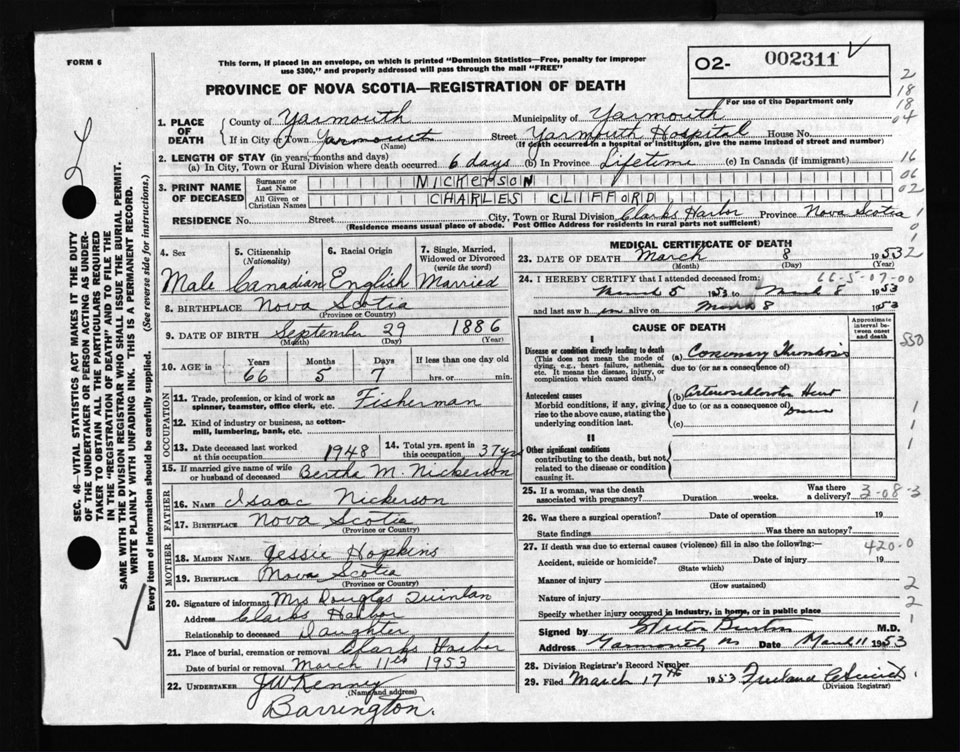 FORM 6
This form, if placed in an envelope, on which is printed "Dominion Statistics—Free, penalty for improper
use $300," and properly addressed will pass through the mail "FREE"
O2- 002311
For use of the Department only
PROVINCE OF NOVA SCOTIA—REGISTRATION OF DEATH
1. PLACE OF DEATH
County of Yarmouth Municipality of Yarmouth
If in City or Town Yarmouth Street Yarmouth Hospital House No.
(Name) (If death occurred in a hospital or institution, give the name instead of street and number)
2. LENGTH OF STAY (in years, months and days)
(a) In City, Town or Rural Division where death occurred 6 days (b) In Province Lifetime (c) In Canada (if immigrant)
3. PRINT NAME OF DECEASED
Surname or Last Name NICKERSON
All Given or Christian Names CHARLES CLIFFORD
RESIDENCE No. Street City, Town or Rural Division Clarks Harbor Province Nova Scotia
(Residence means usual place of abode. Post Office Address for residents in rural parts not sufficient)
4. Sex Male
5. Citizenship (Nationality) Canadian
6. Racial Origin English
7. Single, Married, Widowed or Divorced (write the word) Married
8. BIRTHPLACE Nova Scotia
(Province or Country)
9. DATE OF BIRTH September 29 1886
(Month) (Day) (Year)
10. AGE in Years Months Days If less than one day old
66 5 7 hrs. or min.
OCCUPATION
11. Trade, profession, or kind of work as spinner, teamster, office clerk, etc. Fisherman
12. Kind of industry or business, as cotton-mill, lumbering, bank, etc.
13. Date deceased last worked at this occupation 1948
14. Total yrs. spent in this occupation 37 yrs
15. If married give name of wife or husband of deceased Bertha M. Nickerson
FATHER
16. Name Isaac Nickerson
17. Birthplace Nova Scotia
(Province or Country)
MOTHER
18. Maiden Name Jessie Hopkins
19. Birthplace Nova Scotia
(Province or Country)
20. Signature of informant Mrs Douglas Quinlan
Address Clarks Harbor
Relationship to deceased Daughter
21. Place of burial, cremation or removal Clarks Harbor
Date of burial or removal March 11th 1953
22. UNDERTAKER J W Kenney
(Name and address)
Barrington.
MEDICAL CERTIFICATE OF DEATH
23. DATE OF DEATH March 8 1953
(Month) (Day) (Year)
66-5-07-00
24. I HEREBY CERTIFY that I attended deceased from:
March 5 1953 to March 8 1953
and last saw him alive on March 8 1953
CAUSE OF DEATH
Approximate interval between onset and death
I
Disease or condition directly leading to death (a) Coronary Thrombosis
(This does not mean the mode of dying, e.g., heart failure, asthenia, etc. It means the disease, injury, or complication which caused death.
due to (or as a consequence of)
Antecedent causes (b) Arteriosclerotic Heart
Morbid conditions, if any, giving rise to the above cause, stating the underlying condition last.
due to (or as a consequence of)
(c)
II
Other significant conditions
contributing to the death, but not related to the disease or condition causing it.
25. If a woman, was the death associated with pregnancy? Duration weeks. Was there a delivery?
3-08-3
26. Was there a surgical operation? Date of operation 19
State findings Was there an autopsy?
27. If death was due to external causes (violence) fill in also the following:—
420-0
Accident, suicide or homicide? Date of injury 19
(State which)
Manner of injury
(How sustained)
Nature of injury
Specify whether injury occurred in industry, in home, or in public place
Signed by Burton M.D.
Address Yarmouth NS Date March 11 1953
28. Division Registrar's Record Number
29. Filed March 17th 1953
(Division Registrar)
SEC. 46—VITAL STATISTICS ACT MAKES IT THE DUTY
OF THE UNDERTAKER OR PERSON ACTING AS UNDER-
TAKER TO OBTAIN ALL THE PARTICULARS REQUIRED
IN THE "REGISTRATION OF DEATH" AND TO FILE THE
SAME WITH THE DIVISION REGISTRAR WHO SHALL ISSUE THE BURIAL PERMIT.
WRITE PLAINLY WITH UNFADING INK. THIS IS A PERMANENT RECORD.
Every item of information should be carefully supplied. (See reverse side for instructions.)
2
18
18
04
16
06
02
1
0
1
2
550
1
1
1
2
2
1